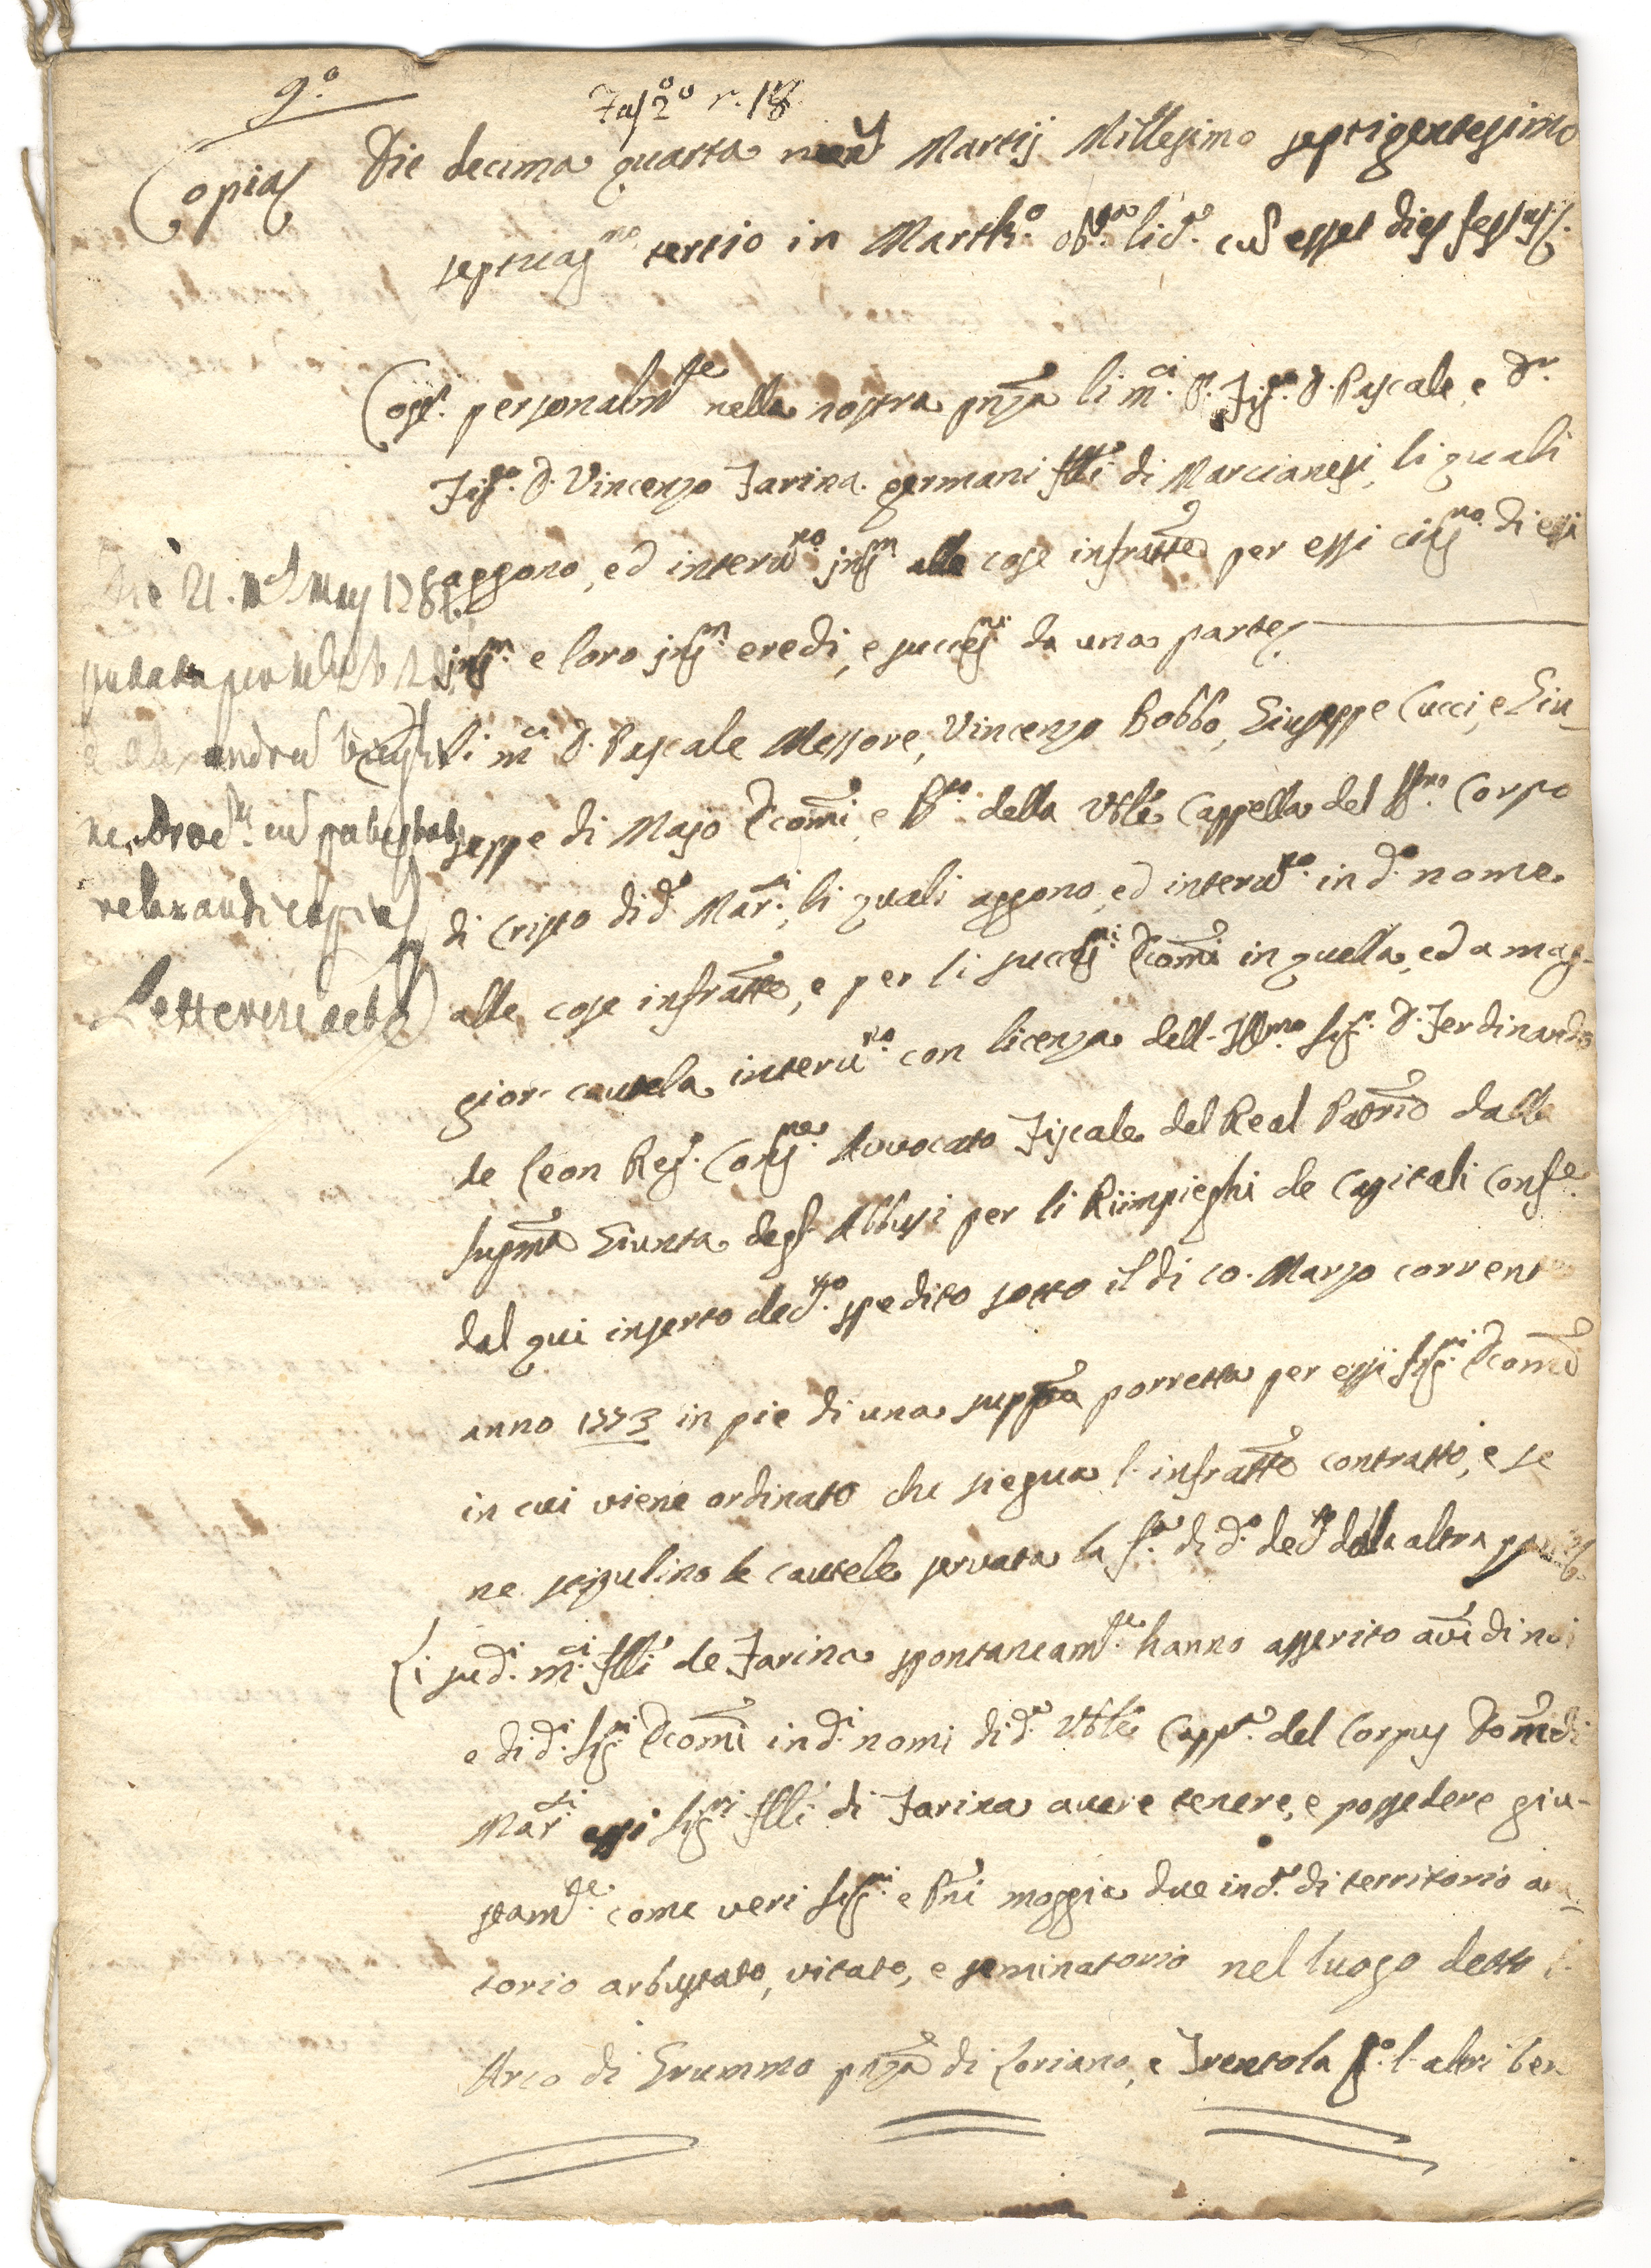 9.º
Fas 2º n. 18.
Copia Die decima quarta men̄ Martij Millesimo septigentesimo
septuag.mo tertio in Marth.º
Cost. personalm.te nella nostra pn̄za li m.ci D.r Fis.º D. Pascale, e D.r
Fis.º D. Vincenzo Farina germani flli di Marcianesi, li quali
aggono, ed interv.no insm alle cose infratte per essi cias.no di essi
ins.m e loro ins.m eredi, e success.ri da una parte
li m.ci D. Pascale Messore, Vincenzo Bobbo, Giuseppe Cucci, e Giu-
seppe di Majo Econ̄mi, e della Vble Cappella del SS.mo Corpo
di Cristo di d.º Mar.si, li quali aggono, ed interv.no in d.º nome
alle cose infratte, e per li succes.ri Econ̄mi in quella, ed a mag-
gior cautela interv.no con licenza dell-Ill.mo Sig.r D. Ferdinando
de Leon Reg.º Cons.re Avvocato Fiscale del Real Patrīo dalla
Supm̄a Giunta deg.l Abbusi per li Riimpieghi de Capitali
dal qui inserto dec.to spedito sotto il di 10. Marzo corrent
anno 1773 in pie di una suppca porretta per essi Sig.ri Econ̄mi
in cui viene ordinato che siegua l-infratto contratto, e se
ne stipulino le cautele servata la f.a di d.º dec.to dalla altra parte
Li sud.i m.ci flli de Farina spontaneam.te hanno asserito avī di noi
e di d.i Sig.ri Econ̄mi in d.i nomi di d.a Vble Capp.a del Corpus Dom̄i di
Mar.si essi Sig.ri flli di Farina avere tenere, e possedere giu-
stam.te come veri Sig.ri e Pn̄i moggia due in d.a di territorio
torio arbustato, vitato, e seminatorio nel luogo detto l-
Arco di Grummo pn̄za di Loriano, e Trentola l-altri ben
Die 21. m.s May 178
relaxandi copia